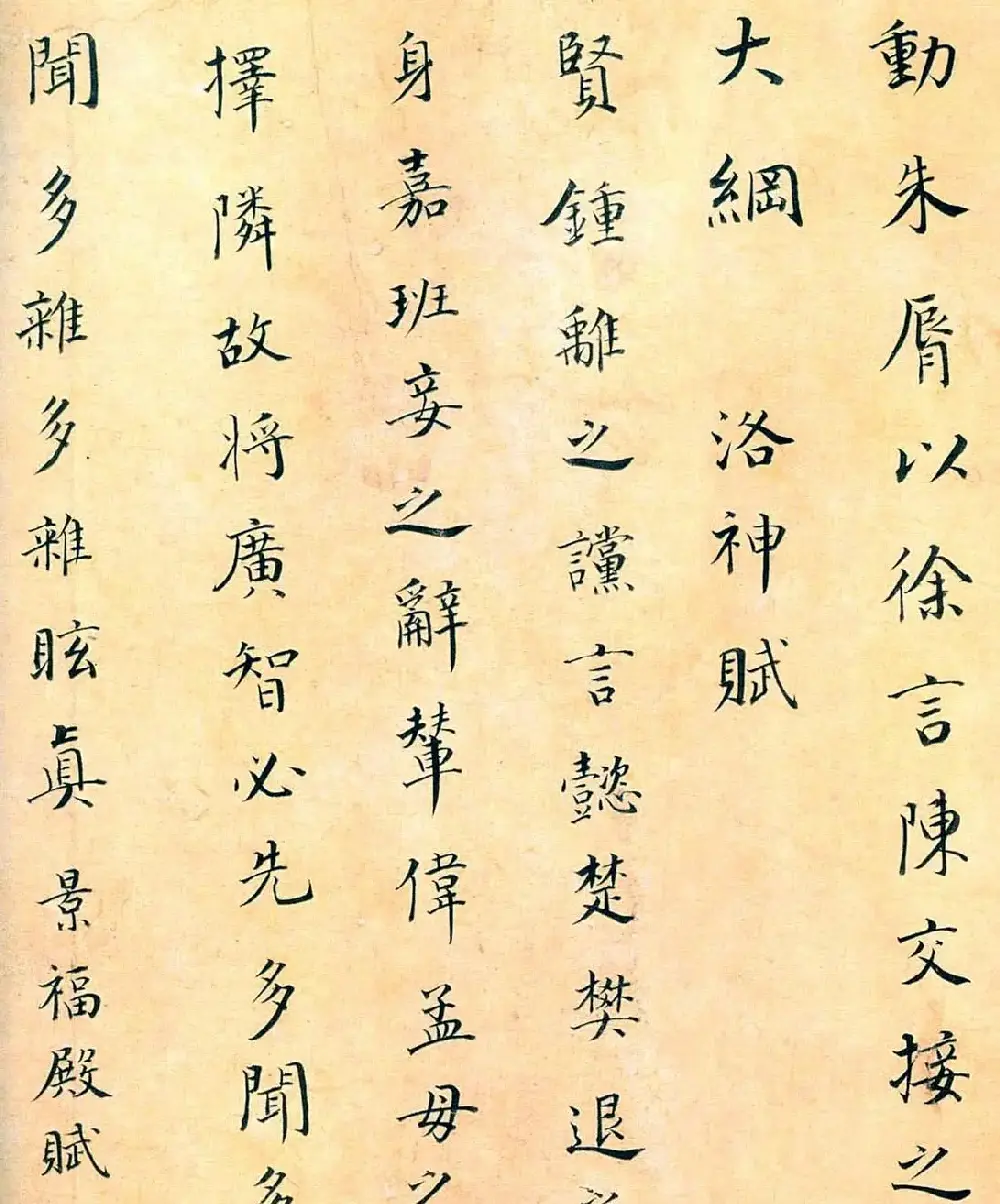 動朱脣以徐言陳交接之
大綱　洛神賦
賢鍾離之讜言懿楚樊退之
身嘉班妾之辭輦偉孟母之
擇隣故将廣智必先多聞多
聞多雜多雜眩真　景福殿賦